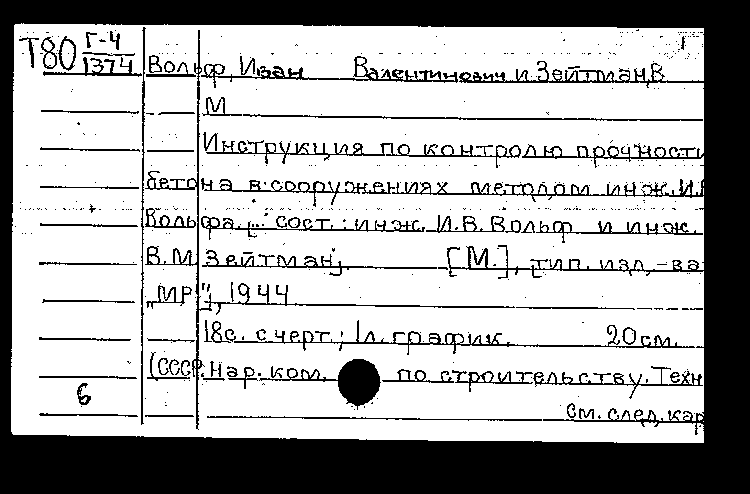 Т80 Г-4
1374
1
Вольф, Иван Валентинович и Зейтман, В.
М
Инструкция по контролю прочности
бетона в сооружениях методом инж. И.В
Вольфа. [Сост.: инж. И.В. Вольф и инж.
В.М. Зейтман]. [М.], тип. изд.-ва
„МРГ", 1944
18с. с черт.; 1л. график. 20см.
(СССР. Нар. ком. по строительству. Техн
6
См. след. кар